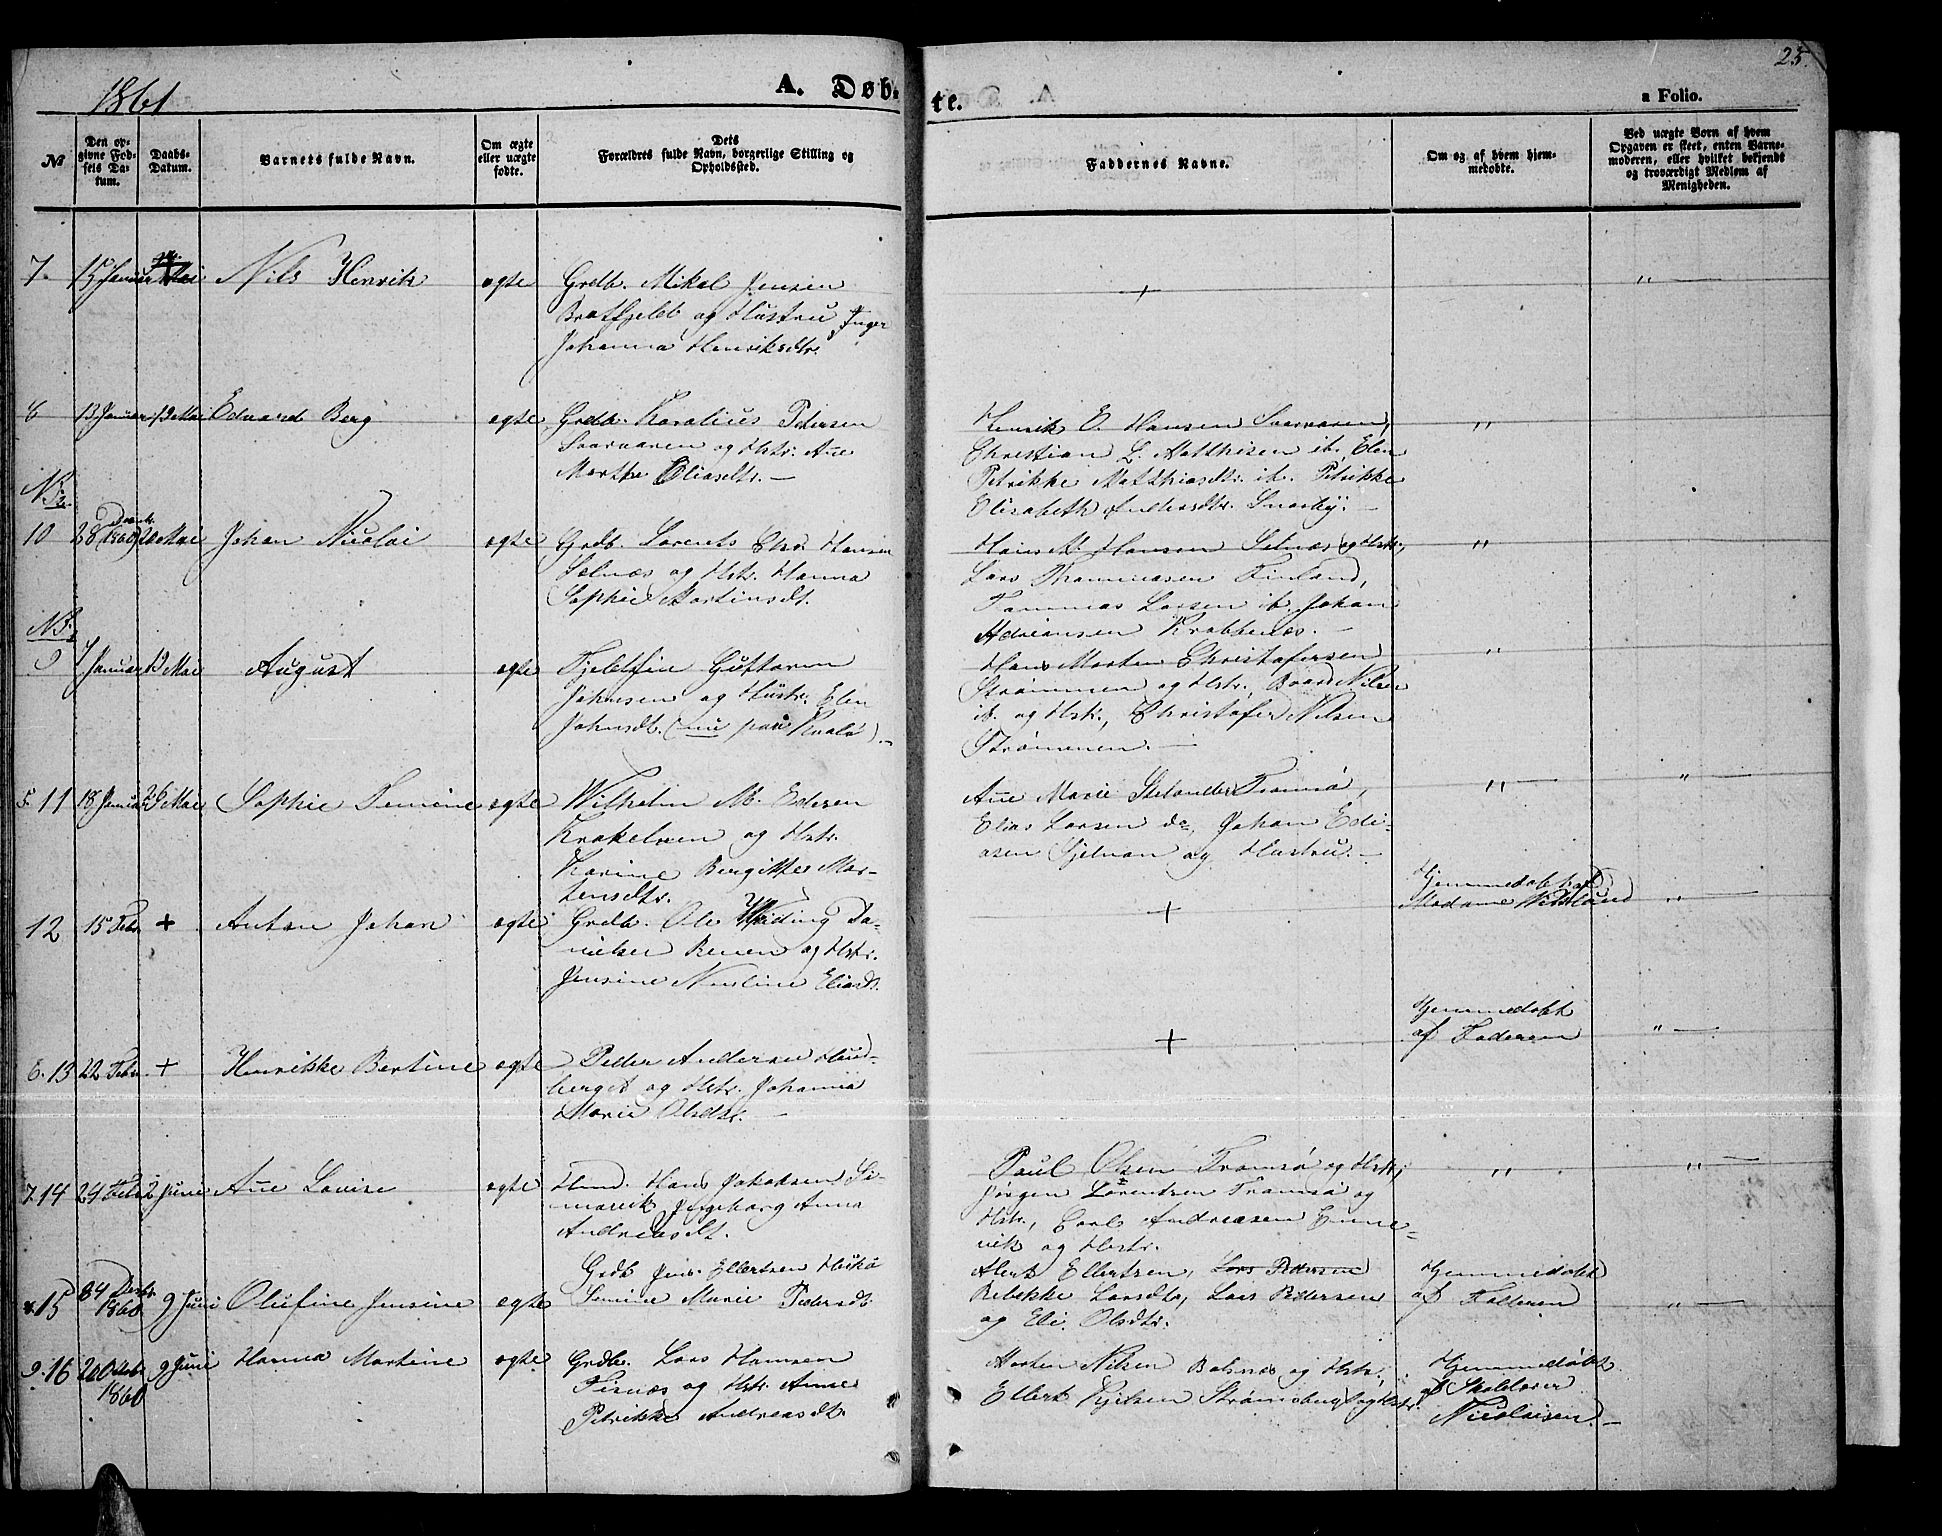 1861
A. Døb-
te.
25.
a Folio.
№
Den op-
givne Fød-
sels Da-
tum.
Daabs-
Datum.
Barnets fulde Navn.
Om ægte
eller uægte
fødte.
Dets
Forældres fulde Navn, borgerlige Stilling og
Opholdssted.
Faddernes Navne.
Om og af hvem hjem-
medøbt.
Ved uægte Børn af hvem
Opgaven er skeet, enten Barne-
moderen, eller hvilket bekjendt
og troværdigt Medlem af
Menigheden.
7. 15 Januar Nils Henrik ægte Grdb. Mikal Jensen + "
Bratfjeld og Hustru Inger
Johanna Henriksdtr.
8 13 Januar 19 Mai Edvard Berg ægte Grdb. Karolius Pedersen
Hustr. Ane
Marthe Eliasdtr. —
Henrik O. Hansen "
Christian L. Matthisen ib. Elen
Petrikke Matthiasdtr. ib. Petrikke
Elisabeth Andreasdtr. Snarby. —
NB.
10 28 1860 20 Mai Johan Nicolai ægte Grdb. Lorents Chr. Hansen
Selnæs og Hstr. Hanna
Sophie Martinsdt.
Hans M. Hansen Selnæs og Hstr., "
Lars Thommasen Finland,
Tommas Larsen ib. Johan
Adriansen Krabbenæs. —
NB.
9 7 Januar 19 Mai August ægte Fjeldfin Guttorm
Johnsen og Hustr. Elen
Johnsdt. (nu paa Kvalø). —
Hans Morten Christofersen "
Strømmen og Hstr., Baard Nilsen
ib. og Hstr., Christofer Nilsen
Strømmen. —
5. 11 18 Januar 26 Mai Sophie ægte Wilhelm M. Edisen
Krokelven og Hstr.
Karine Bergitte Mor-
tensdtr.
Ane Marie Tromsø, " "
Elias Larsen do, Johan Edi-
asen og Hustru. —
12 15 Febr. + Anton Johan ægte Grdb. Ole Wading Da-
nielsen og Hstr.
Jensine Eliasdt.
+ Hjemmedøbt af
Madame "
6. 13 22 Febr. + Henrikke Bertine ægte Peder Andersen
berget og Hstr. Johanna
Marie Olsdtr. —
+ Hjemmedøbt
af Faderen "
7. 14 24 Febr. 2 Juni Ane Lovise ægte Hans Jakobsen Si-
mavik Ingeborg Anna
Andreasdt.
Paul Olsen Tromsø og Hstr., " "
Jørgen Lorentsen Tromsø og
Hstr., Carl Andreasen Finne-
vik og Hstr.
8. 15 1860 9 Juni Olufine Jensine ægte Grdb Jens Ellertsen
Simine Marie Pedersdt.
Ellertsen, Lars Pedersen
Rebekke Larsdtr, Lars Pedersen
og Eli Olsdtr.
Hjemmedøbt
af Faderen "
9. 16 20 Octbr 1860 9 Juni Hanna Martine ægte Grdb. Lars Hansen
og Hstr. Anne
Petrikke Andreasdt.
Morten Nilsen Balsnes og Hstr.,
Ellert Kjelsen og Hstr.
Hjemmedøbt
af Skolelærer
Nicolaisen. —